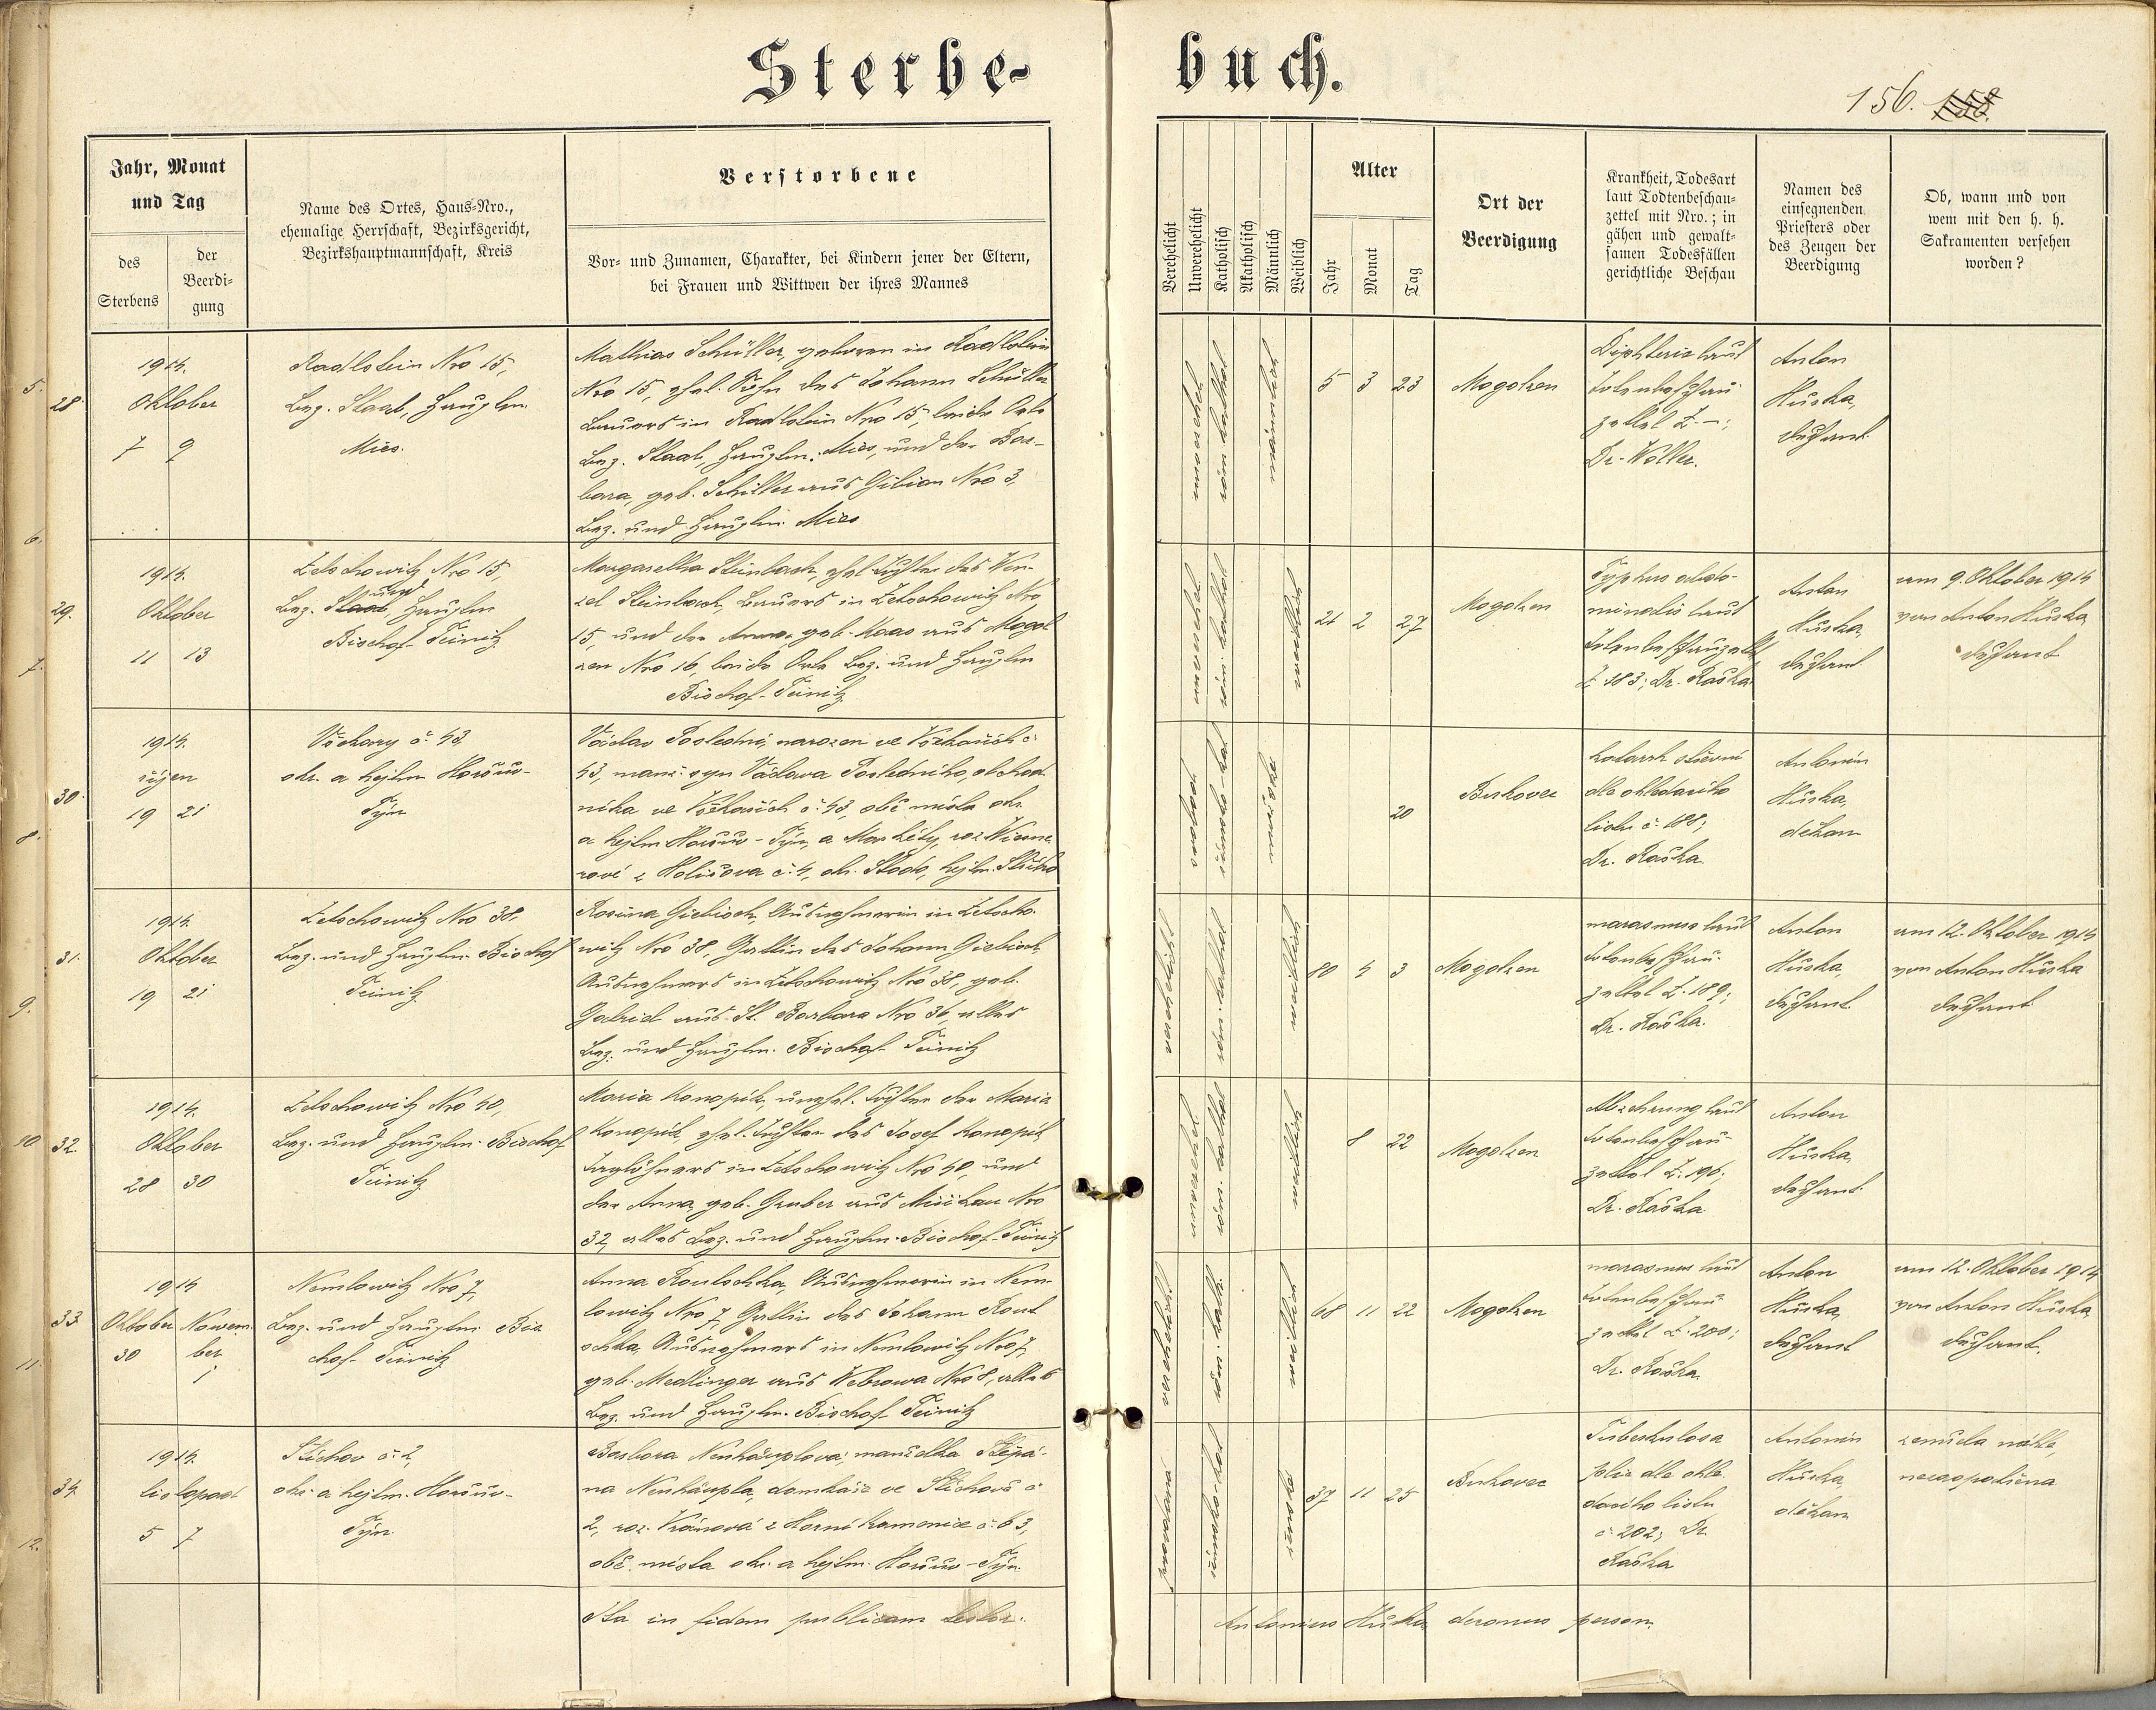 Sterbe-
buch.
156. 158.
Jahr, Monat
und Tag
des
Sterbens
der
Beerdi-
gung
Name des Ortes, Haus-Nro.,
ehemalige Herrschaft, Bezirksgericht,
Bezirkshauptmannschaft, Kreis
Verstorbene
Vor- und Zunamen, Charakter, bei Kindern jener der Eltern,
bei Frauen und Wittwen der ihres Mannes
Verehelicht
Unverehelicht
Katholisch
Akatholisch
Männlich
Weiblich
Alter
Jahr
Monat
Tag
Ort der
Beerdigung
Krankheit, Todesart
laut Todtenbeschau-
zettel mit Nro.; in
gähen und gewalt-
samen Todesfällen
gerichtliche Beschau
Namen des
einsegnenden
Priesters oder
des Zeugen der
Beerdigung
Ob, wann und von
wem mit den h. h.
Sakramenten versehen
worden?
28.
1914.
Oktober
7 9
Radlstein Nro 15,
Bez. Staab, Hauptm.
Mies.
Mathias Schüller, geboren in Radlstein
Nro 15, ehel. Sohn des Johann Schüller
Bauers in Radlstein Nro 15, beide Orte
Bez. Staab, Hauptm. Mies, und der Bar-
bara, geb. Schiller aus Gibian Nro 3,
Bez. und Hauptm. Mies
unverehel.
röm. kathol.
männlich
5 3 23
Mogolzen
Diphterie laut
Totenbeschau
zettel Z. —;
Dr. Woller.
Anton
Huska,
Dechant
29.
1914.
Oktober
11 13
Zetschowitz Nro 15,
Bez. Staab und Hauptm
Bischof-Teinitz
Margaretha Steinbach, ehel. Tochter des Wen-
zel Steinbach, Bauers in Zetschowitz Nro
15, und der Anna, geb. Haas aus Mogol
zen Nro 16, beide Orte Bez. und Hauptm
Bischof-Teinitz
unverehel.
röm. kathol.
weiblich
21 2 27
Mogolzen
Typhus abdo-
minalis laut
Totenbeschauzettel
Z. 183; Dr. Raška
Anton
Huska,
Dechant
am 9. Oktober 1914
von Anton Huska
Dechant
30.
1914.
říjen
19 21
Věchary č. 43,
okr. a hejtm. Horšuv-
Týn
Václav Poslední, narozen ve
43, manž. syn Václava Posledního, obchod-
níka ve č. 43, obě místa okr.
a hejtm. Horšuv-Týn, a Markéty, roz.
rové z Holišova č. 4, okr. Stodo, hejtm. Stříbro
svobodný
římsko-kat.
mužské
20
Bukovec
katarrh střevní
dle ohledacího
listu č. 188;
Dr. Raška.
Antonín
Huska,
děkan
31.
1914.
Oktober
19 21
Zetschowitz Nro 38,
Bez. und Hauptm. Bischof
Teinitz
Rosina Giebisch, Ausnehmerin in Zetscho-
witz Nro 38, Gattin des Johann Giebisch
Ausnehmers in Zetschowitz Nro 38, geb.
Gabriel aus St. Barbara Nro 36, alles
Bez. und Hauptm. Bischof-Teinitz
verehelicht
röm. kathol.
weiblich
80 4 3
Mogolzen
marasmus laut
Totenbeschau-
zettel Z. 189;
Dr. Raška.
Anton
Huska,
Dechant
am 12. Oktober 1914
von Anton Huska
Dechant
32.
1914.
Oktober
28 30
Zetschowitz Nro 40,
Bez. und Hauptm. Bischof
Teinitz
Maria Konopik, unehel. Tochter der Maria
Konopik, ehel. Tochter des Josef Konopik
Taglöhners in Zetschowitz Nro 40, und
der Anna, geb. Gruber aus Mirikau Nro
32, alles Bez. und Hauptm. Bischof-Teinitz
unverehel.
röm. kathol.
weiblich
8 22
Mogolzen
Abzehrung laut
Totenbeschau-
zettel Z. 196;
Dr. Raška
Anton
Huska,
Dechant
33.
1914
Oktober Novem
30 ber
1
Nemlowitz Nro 7,
Bez. und Hauptm. Bis
chof-Teinitz
Anna Routschka, Ausnehmerin in Nem-
lowitz Nro 7, Gattin des Johann Rout
schka, Ausnehmers in Nemlowitz Nro 7,
geb. Medlinger aus Webrowa Nro 8, alles
Bez. und Hauptm. Bischof Teinitz
verehelicht
röm. kath.
weiblich
68 11 22
Mogolzen
marasmus laut
Totenbeschau
zettel Z. 200;
Dr. Raška.
Anton
Huska,
Dechant
am 12. Oktober 1914
von Anton Huska,
Dechant.
34.
1914.
listopad
5 7
Štichov č. 2,
okr. a hejtm. Horšuv-
Týn.
Barbora Neuhäuplová, manželka Štěpá-
na Neuhäupla, domkáře ve Štichově č
2, roz. Vránová z Horní Kamenice č. 63,
obě místa okr. a hejtm. Horšuv-Týn.
římsko-kat
ženské
37 11 25
Bukovec
Tuberkulosa
plic dle ohle
dacího listu
č. 202; Dr.
Raška
Antonín
Huska,
děkan
zemřela náhle,
nezaopatřena
Ita in fidem publicam testor.
Antonius Huska decanus person.